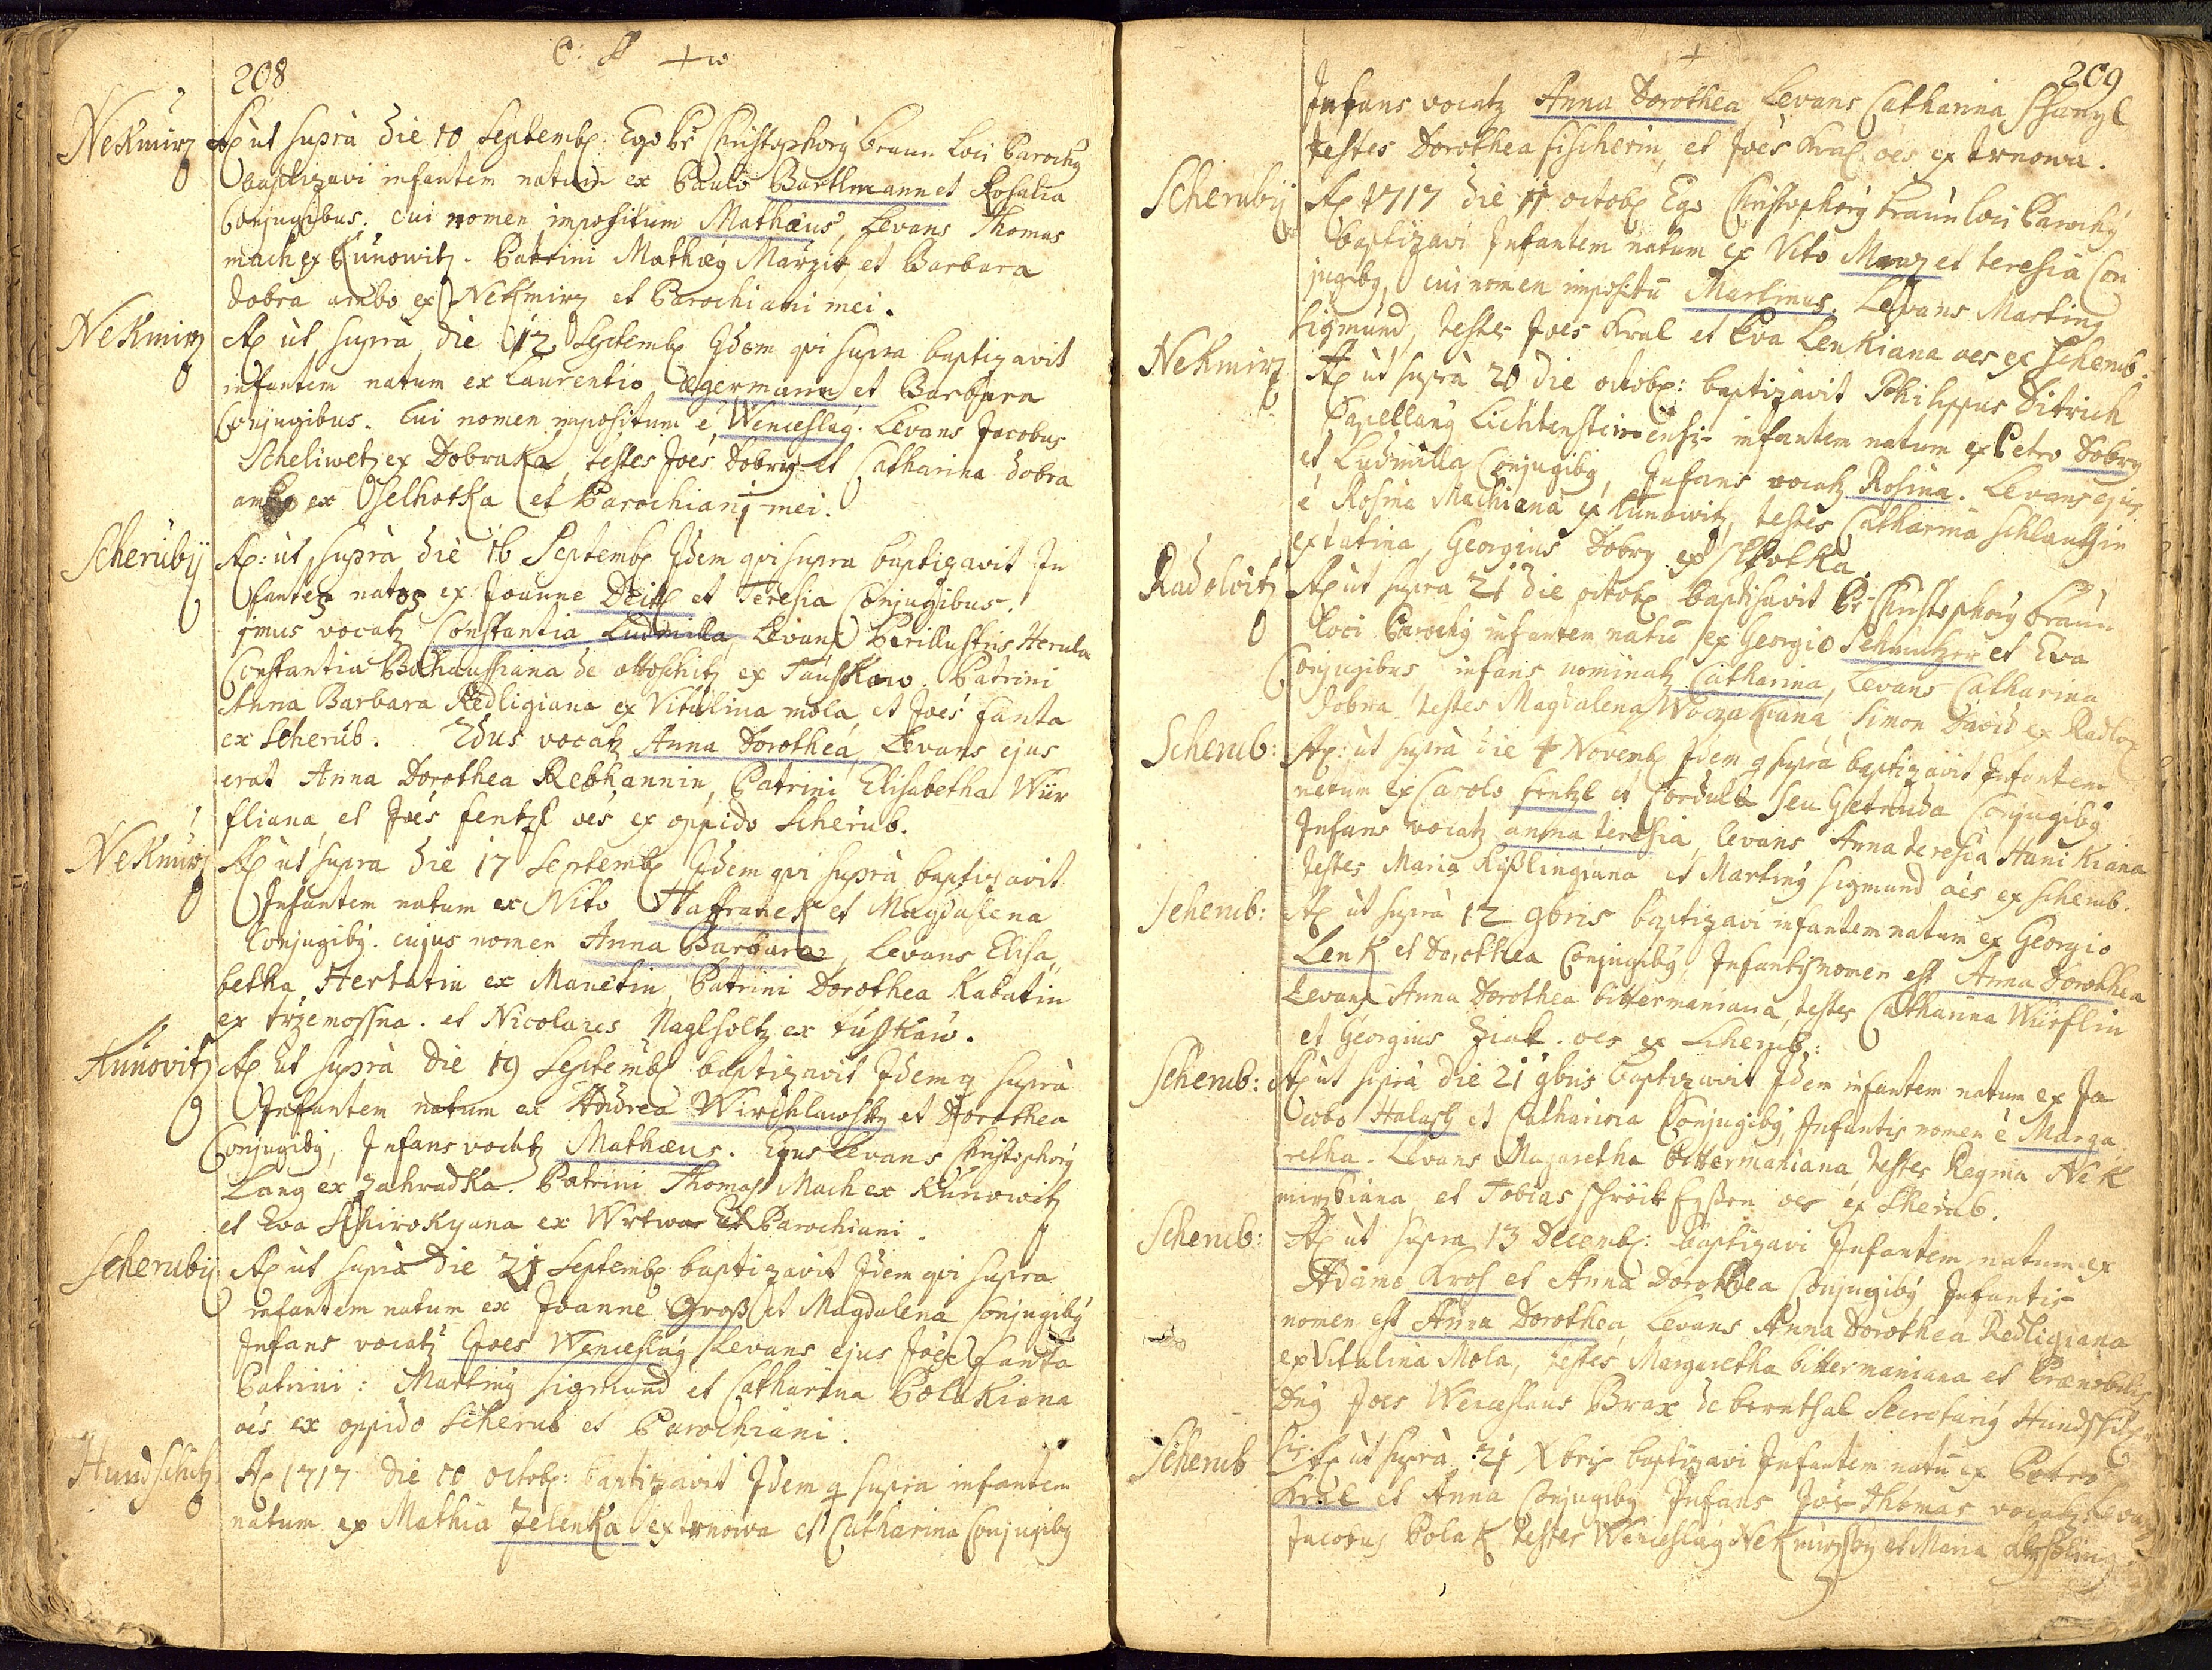 208
Nekmirz
A͠o ùt suprà die 10 Septemb: Ego Pr Christophorꝯ Braun loci Parochꝯ
baptizavi infantem natum ex Paulo Bartlmann et Rosalia
Conjugibus. cui nomen impositum Mathæus, Levans Thomas
mach ex Kunowitz. Patrini Mathæꝯ Marzik et Barbara
dobra ambo ex Nekmirz et Parochiani mei.
Nekmirz
A͠o ùt suprà die 12 Septemb Idem qvi supra baptizavit
infantem natum ex Laurentio Ægermann et Barbara
Conjugibus. Cui nomen impositum é Wenceslaꝯ. Levans Jacobus
Scheliwetz ex Dobraka, testes Joés Dobry et Catharina dobra
ambo ex Oselhotka et Parochiani mei.
Scherubÿ
A͠o: ùt suprà die 16 Septemb Idem qvi supra baptizavit In
fantes natos ex Joanne Deitl et Teresia Conjugibus.
jmus vocatꝫ Constantia Ludmilla, Levans Perillustris Herula
Constantia de ottoschitz ex Tauskow. Patrini
Anna Barbara Redligiana ex Vitulina mola, et Joés fanta
ex Scherub. 2dus vocatꝫ Anna Dorothea, Levans ejus
erat Anna Dorothea Rebhannin, Patrini Elisabetha Wür
fliana, et Joés fentzl oés ex oppido Scherub.
Nekmirz
A͠o ùt supra die 17 Septemb Idem qvi suprà baptizavit
Infantem natum ex Vito Haffranek et Magdalena
Conjugibꝯ. cujus nomen Anna Barbara, Levans Elisa,
betha Hertatin ex Manetin, Patrini Dorothea Kabatin
ex trzemossna. et Nicolaus Naglholtz ex tusskau.
Kunovitz
A͠o ùt suprà die 19 Septemb baptizavit Idem q suprà
Infantem natum ex Andrea Wirchlawsky et Dorothea
Conjugibꝯ, Infans vocatꝫ Mathæus. Ejus Levans Christophorꝯ
Lang ex zahradka. Patrini Thomas Mach ex Kunowitz
et Eva Schirokyana ex Wrtwa et Parochiani.
Scherubÿ
A͠o ùt suprà die 21 Septemb baptizavit Idem qvi supra
infantem natum ex Joanne Groß et Magdalena Conjugibꝯ
Infans vocatꝫ Joes Wenceslaꝯ, Levans ejus Joés fanta
Patrini: Martinꝯ Sigmund et Catharina Polakiana
oés ex oppido Scherub et Parochiani.
Hundschitz
A͠o 1717 die 10 octob: baptizavit Idem q supra infantem
natum ex Mathia Zelenka ex trnowa et Catharina Conjugibꝯ
209
Infans vocatꝫ Anna Dorothea Levans Catharina
testes Dorothea fischerin, et Joés Kral oés ex trnowa.
Scherubÿ
A͠o 1717 die 11 octob Ego Christophorꝯ Braun loci Parochꝯ
baptizavi Infantem natum ex Vito Manz et teresia Con
jugibꝯ, cui nomen impositū Martinus. Levans Martinꝯ
Sigmund, testes Joes Kral et Eva Lenkiana oes ex Scherub.
Nekmirz
A͠o ùt suprà 20 die octob: baptizavit Philippus Ditrich
Capellanꝯ Lichtensteinensis infantem natum ex Petro Dobry
et Ludmilla Conjugibꝯ, Infans vocatꝫ Rosina. Levans ejus
é Rosina Machiana ex Kunowitz, testes Catharina
ex tatina, Georgius Dobry ex
Radlovitz
A͠o ùt supra 21 die octob baptisavit Pr Christophorꝯ Braun
loci Parochꝯ infantem natū ex Georgio Schmutzer et Eva
Conjugibus, infans nominatꝫ Catharina, Levans Catharina
dobra, testes Magdalena Simon David ex Radlo
Scherub:
A͠o: ùt suprà die 4 Novemb Idem q supra baptizavit Infantem
natum ex Carolo fentzl et Cordula seu Getruda Conjugibꝯ
Infans vocatꝫ anna teresia, levans Anna teresia Hanikiana
testes Maria Kißlingiana et Martinꝯ Sigmund oés ex scherub.
Scherub:
A͠o ùt suprà 12 9bris baptizavi infantem natum ex Georgio
Lenk et Dorothea Conjugibꝯ, Infantis nomen est Anna Dorothea
Levans Anna Dorothea bittermaniana, testes Catharina Würflin
et Georgius Ziak. oes ex Scherub:
Scherub:
A͠o ùt suprà die 21 9bris baptizavit Idem infantem natum ex Ja
cobo Halasch et Catharina Conjugibꝯ, Infantis nomen é Marga
retha. Levans Magaretha bittermaniana testes Regina Nek
mirzkiana, et Tobias oes ex Sherub.
Scherub:
A͠o ùt supra 13 Decemb: baptizavi Infantem natum ex
Adamo Kros et Anna Dorothea Conjugibꝯ Infantis
nomen est Anna Dorothea, Levans Anna Dorothea Redligiana
ex Vitulina Mola, testes Margaretha bittermaniana et Prænobilis
Dnꝯ Joes Wenceslaus Brax de bernthal Secretariꝯ
Scherub
A͠o ùt suprà 21 Xbris baptizavi Infantem natū ex Petro
Kral et Anna Conjugibꝯ Infans Joés Thomas vocatꝫ Levans
Jacobus Polak testes Wenceslaꝯ Nekmirzsky et Maria Kißling